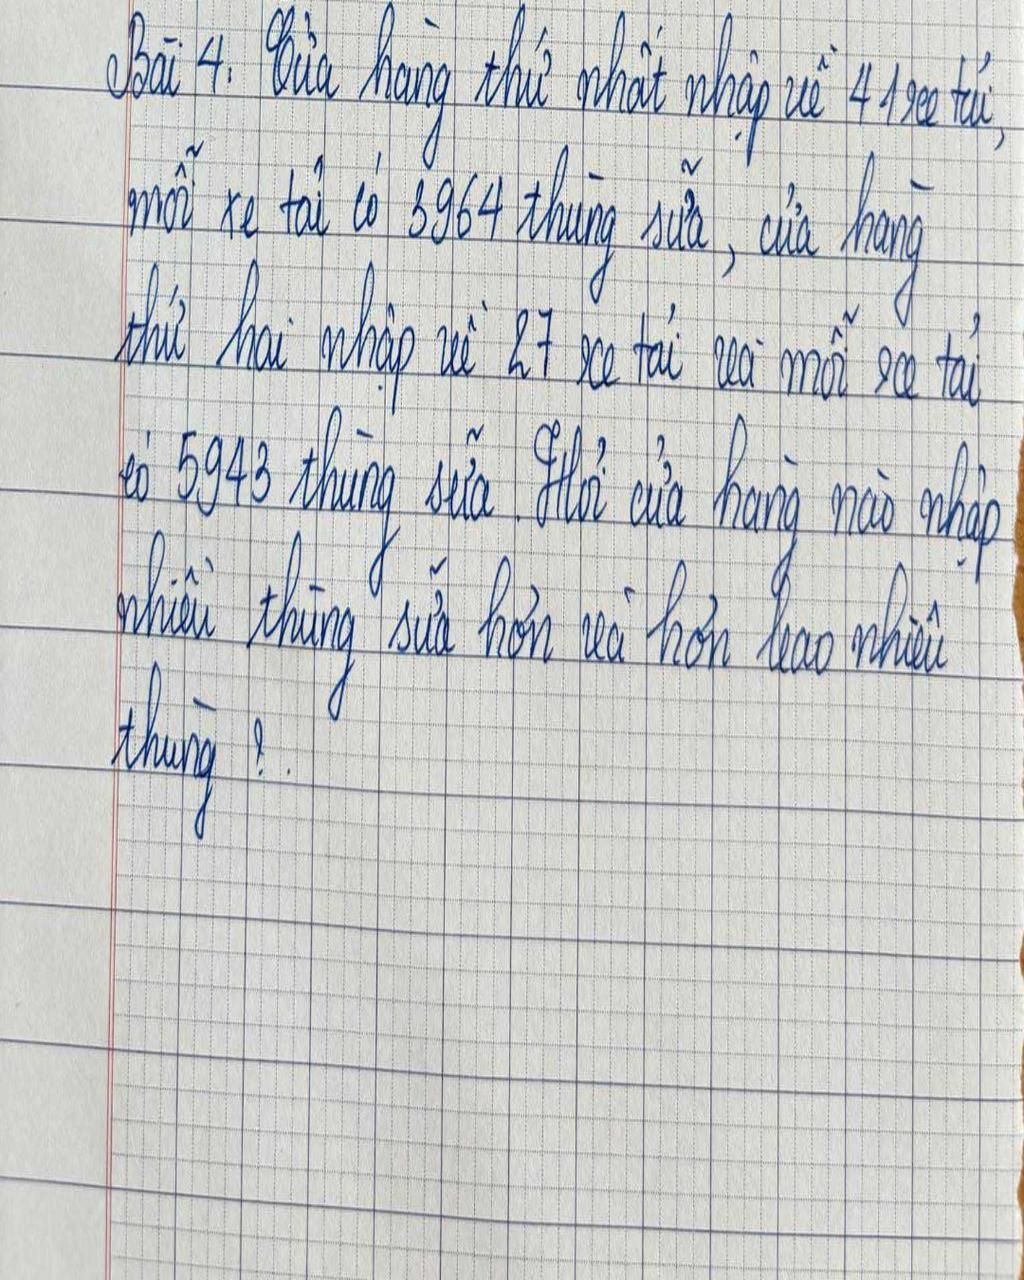 Bài 4. Cửa hàng thứ nhất nhập về 41 xe tải,
mỗi xe tải có 3964 thùng sữa, cửa hàng
thứ hai nhập về 27 xe tải và mỗi xe tải
có 5943 thùng sữa. Hỏi cửa hàng nào nhập
nhiều thùng sữa hơn và hơn bao nhiêu
thùng ?.